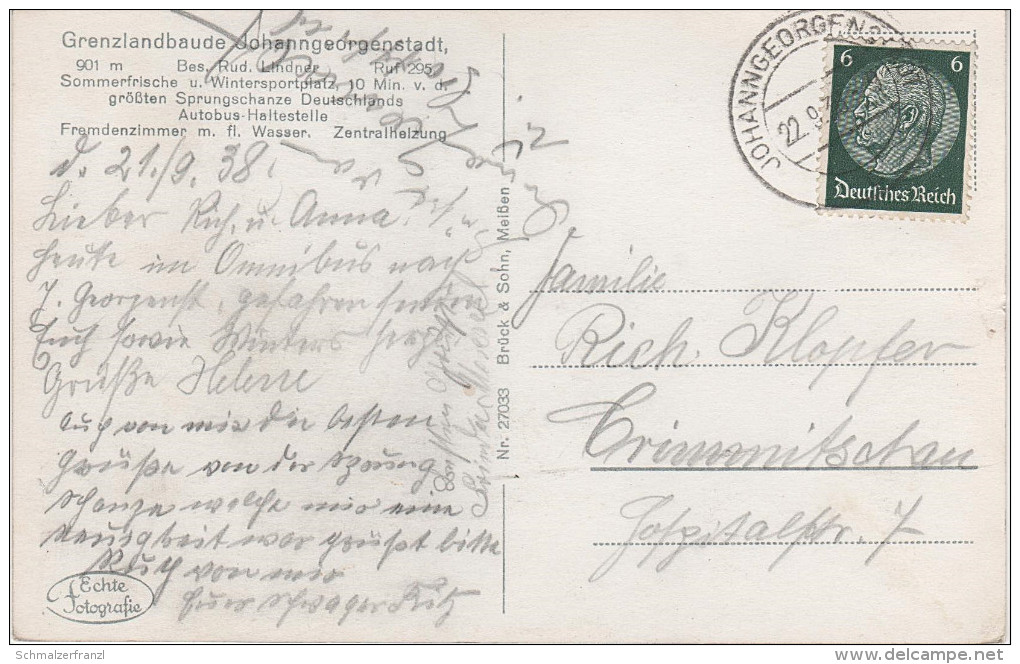 Grenzlandbaude Johanngeorgenstadt,
901 m Bes. Rud. Lindner Ruf 295
Sommerfrische u. Wintersportplatz, 10 Min. v. d.
größten Sprungschanze Deutschlands
Autobus-Haltestelle
Fremdenzimmer m. fl. Wasser. Zentralheizung
d. 21./9. 38.
Lieber Rich. u. Anna.
Heute im Omnibus nach
J. Georgenst. gefahren senden
Euch sowie Winters herzl.
Grüße Helene
Auch von mir die besten
Grüße von der Sprung
schanze welche mir eine
Neuigkeit war grüßt bitte
Ruth von mir
Euer Schwager Fritz
Echte
Fotografie
Nr. 27033 Brück & Sohn, Meißen
JOHANNGEORGENS
22.9.
6 6
Deutsches Reich
Familie
Rich. Klopfer
Crimmitschau
Hospitalstr. 7
Schmalzerfranzl